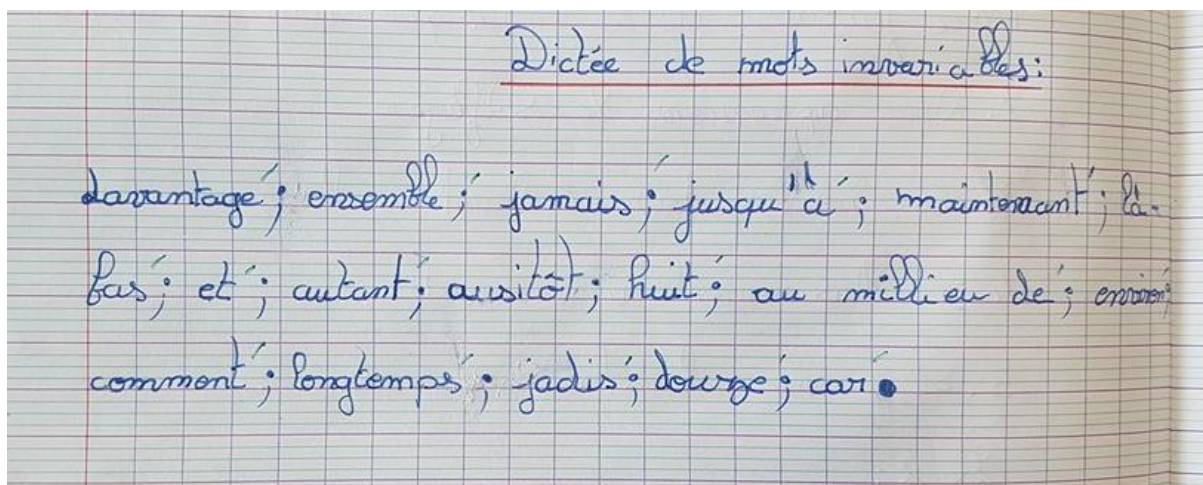 Dictée de mots invariables:
davantage; ensemble; jamais; jusqu'à; maintenant; là-
bas; et; autant; ausitôt; huit; au millieu de; environ;
comment; longtemps; jadis; dourze; car.